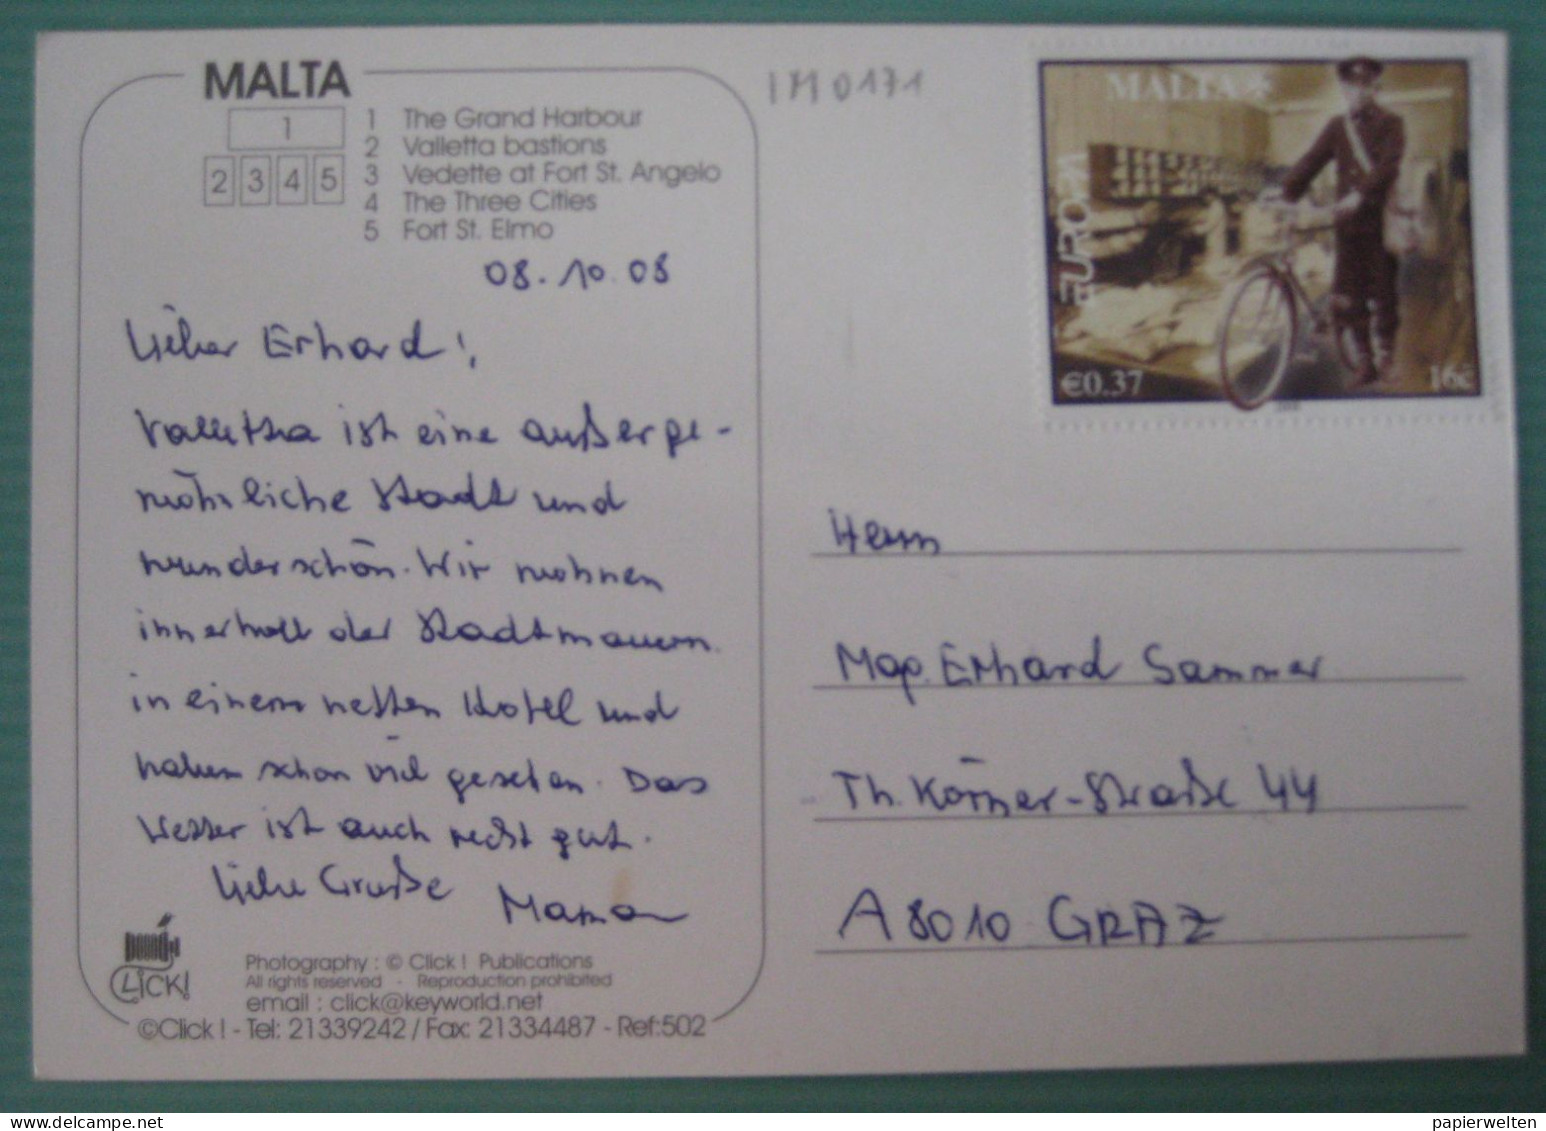 MALTA
1
2 3 4 5
1 The Grand Harbour
2 Valletta bastions
3 Vedette at Fort St. Angelo
4 The Three Cities
5 Fort St. Elmo
08.10.08
Lieber Erhard!,
Vallettha ist eine außerge-
wöhnliche Stadt und
wunderschön. Wir wohnen
innerhalb der Stadtmauern.
in einem netten Hotel und
haben schon viel gesehen. Das
Wetter ist auch recht gut.
Liebe Grüße
Mama
CLICK!
Photography : © Click ! Publications
All rights reserved - Reproduction prohibited
email : click@keyworld.net
©Click ! - Tel: 21339242 / Fax: 21334487 - Ref:502
1M0171
MALTA
EUROPA
€0.37
16c
Herrn
Mag. Erhard Sammer
Th. Körner-Straße 44
A 8010 GRAZ
www.delcampe.net
papierwelten